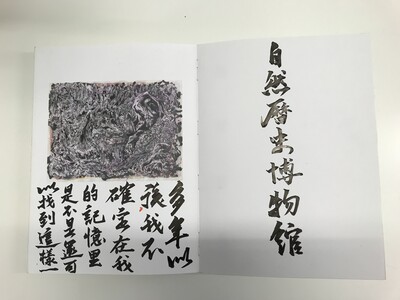 自然曆史博物館
多年以
後我不
確定在我
的記憶里
是不是還可
以找到這樣一